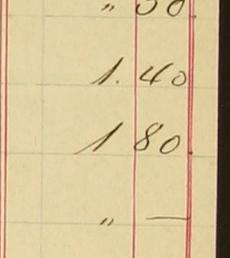 " 50
1.40
1 80
" —